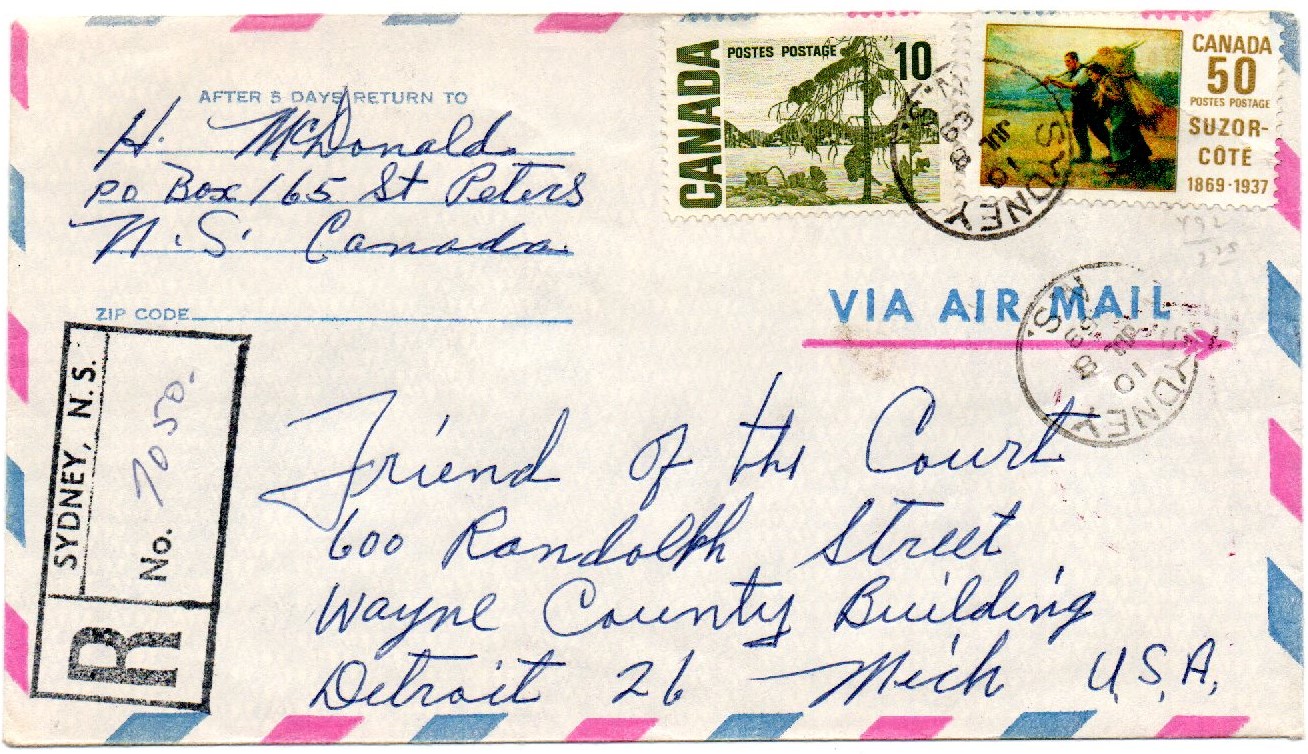 AFTER 5 DAYS RETURN TO
H. McDonald
PO Box 165 St Peters
N.S. Canada
ZIP CODE
CANADA
POSTES POSTAGE
10
CANADA
50
POSTES POSTAGE
SUZOR-
CÔTÉ
1869-1937
SYDNEY
N.S.
10
JUL
69
VIA AIR MAIL
SYDNEY
N.S.
10
JUL
SYDNEY, N. S.
R
No. 7050.
Friend of the Court
600 Randolph Street
Wayne County Building
Detroit 26 Mich U.S.A.